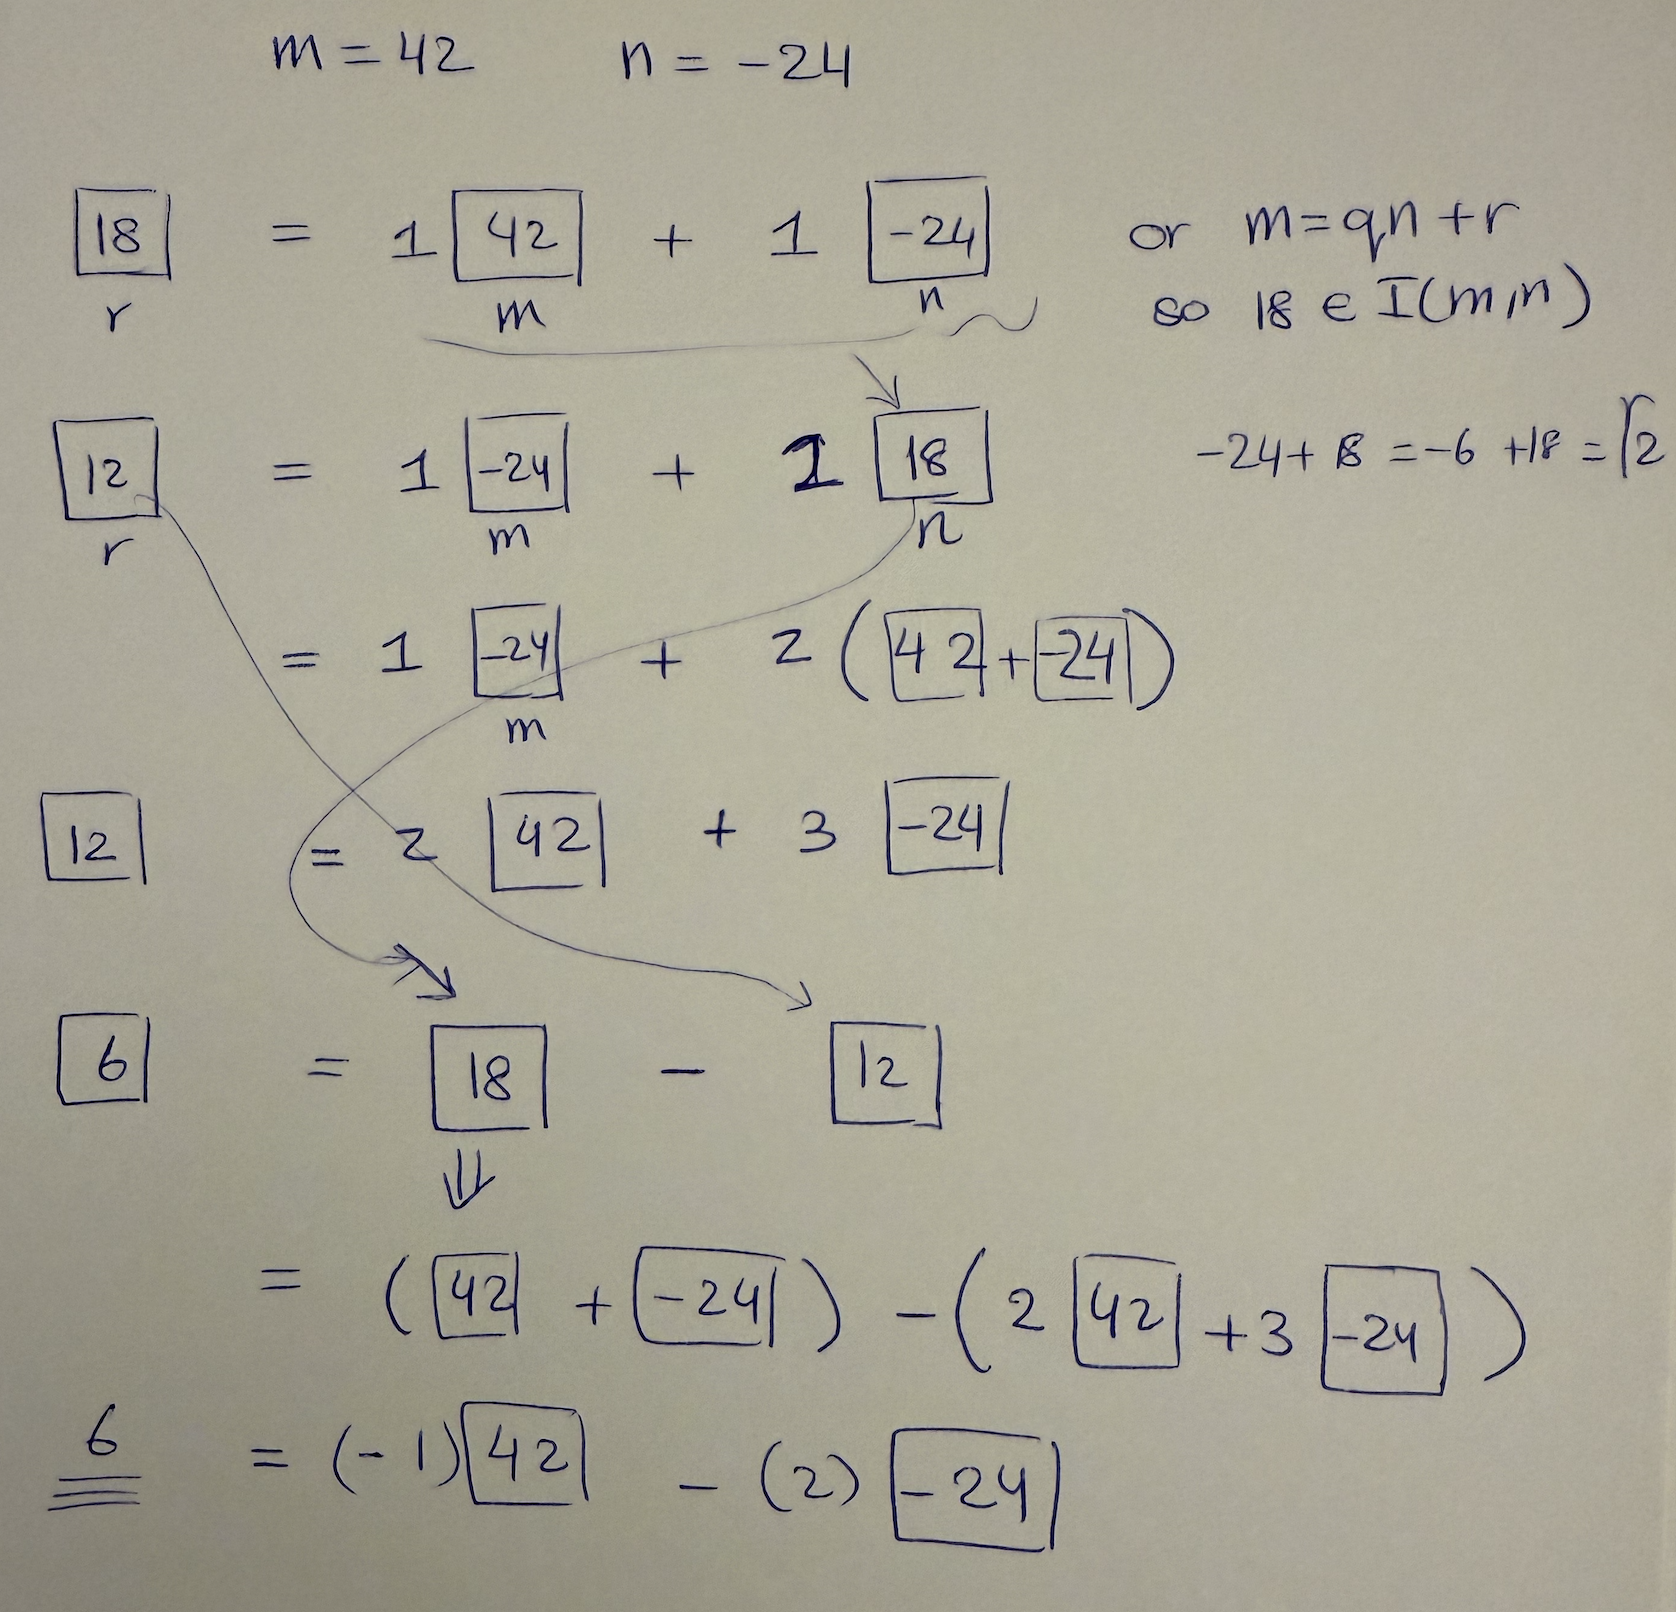 m = 42 n = -24
18 = 1 42 + 1 -24 or m = qn + r
r m n so 18 ∈ I(m,n)
12 = 1 -24 + 1 18 -24 + 18 = -6 + 18 = 12
r m n
= 1 -24 + 2 ( 42 + -24 )
m
12 = 2 42 + 3 -24
6 = 18 - 12
⇓
= ( 42 + -24 ) - ( 2 42 + 3 -24 )
6 = (-1) 42 - (2) -24